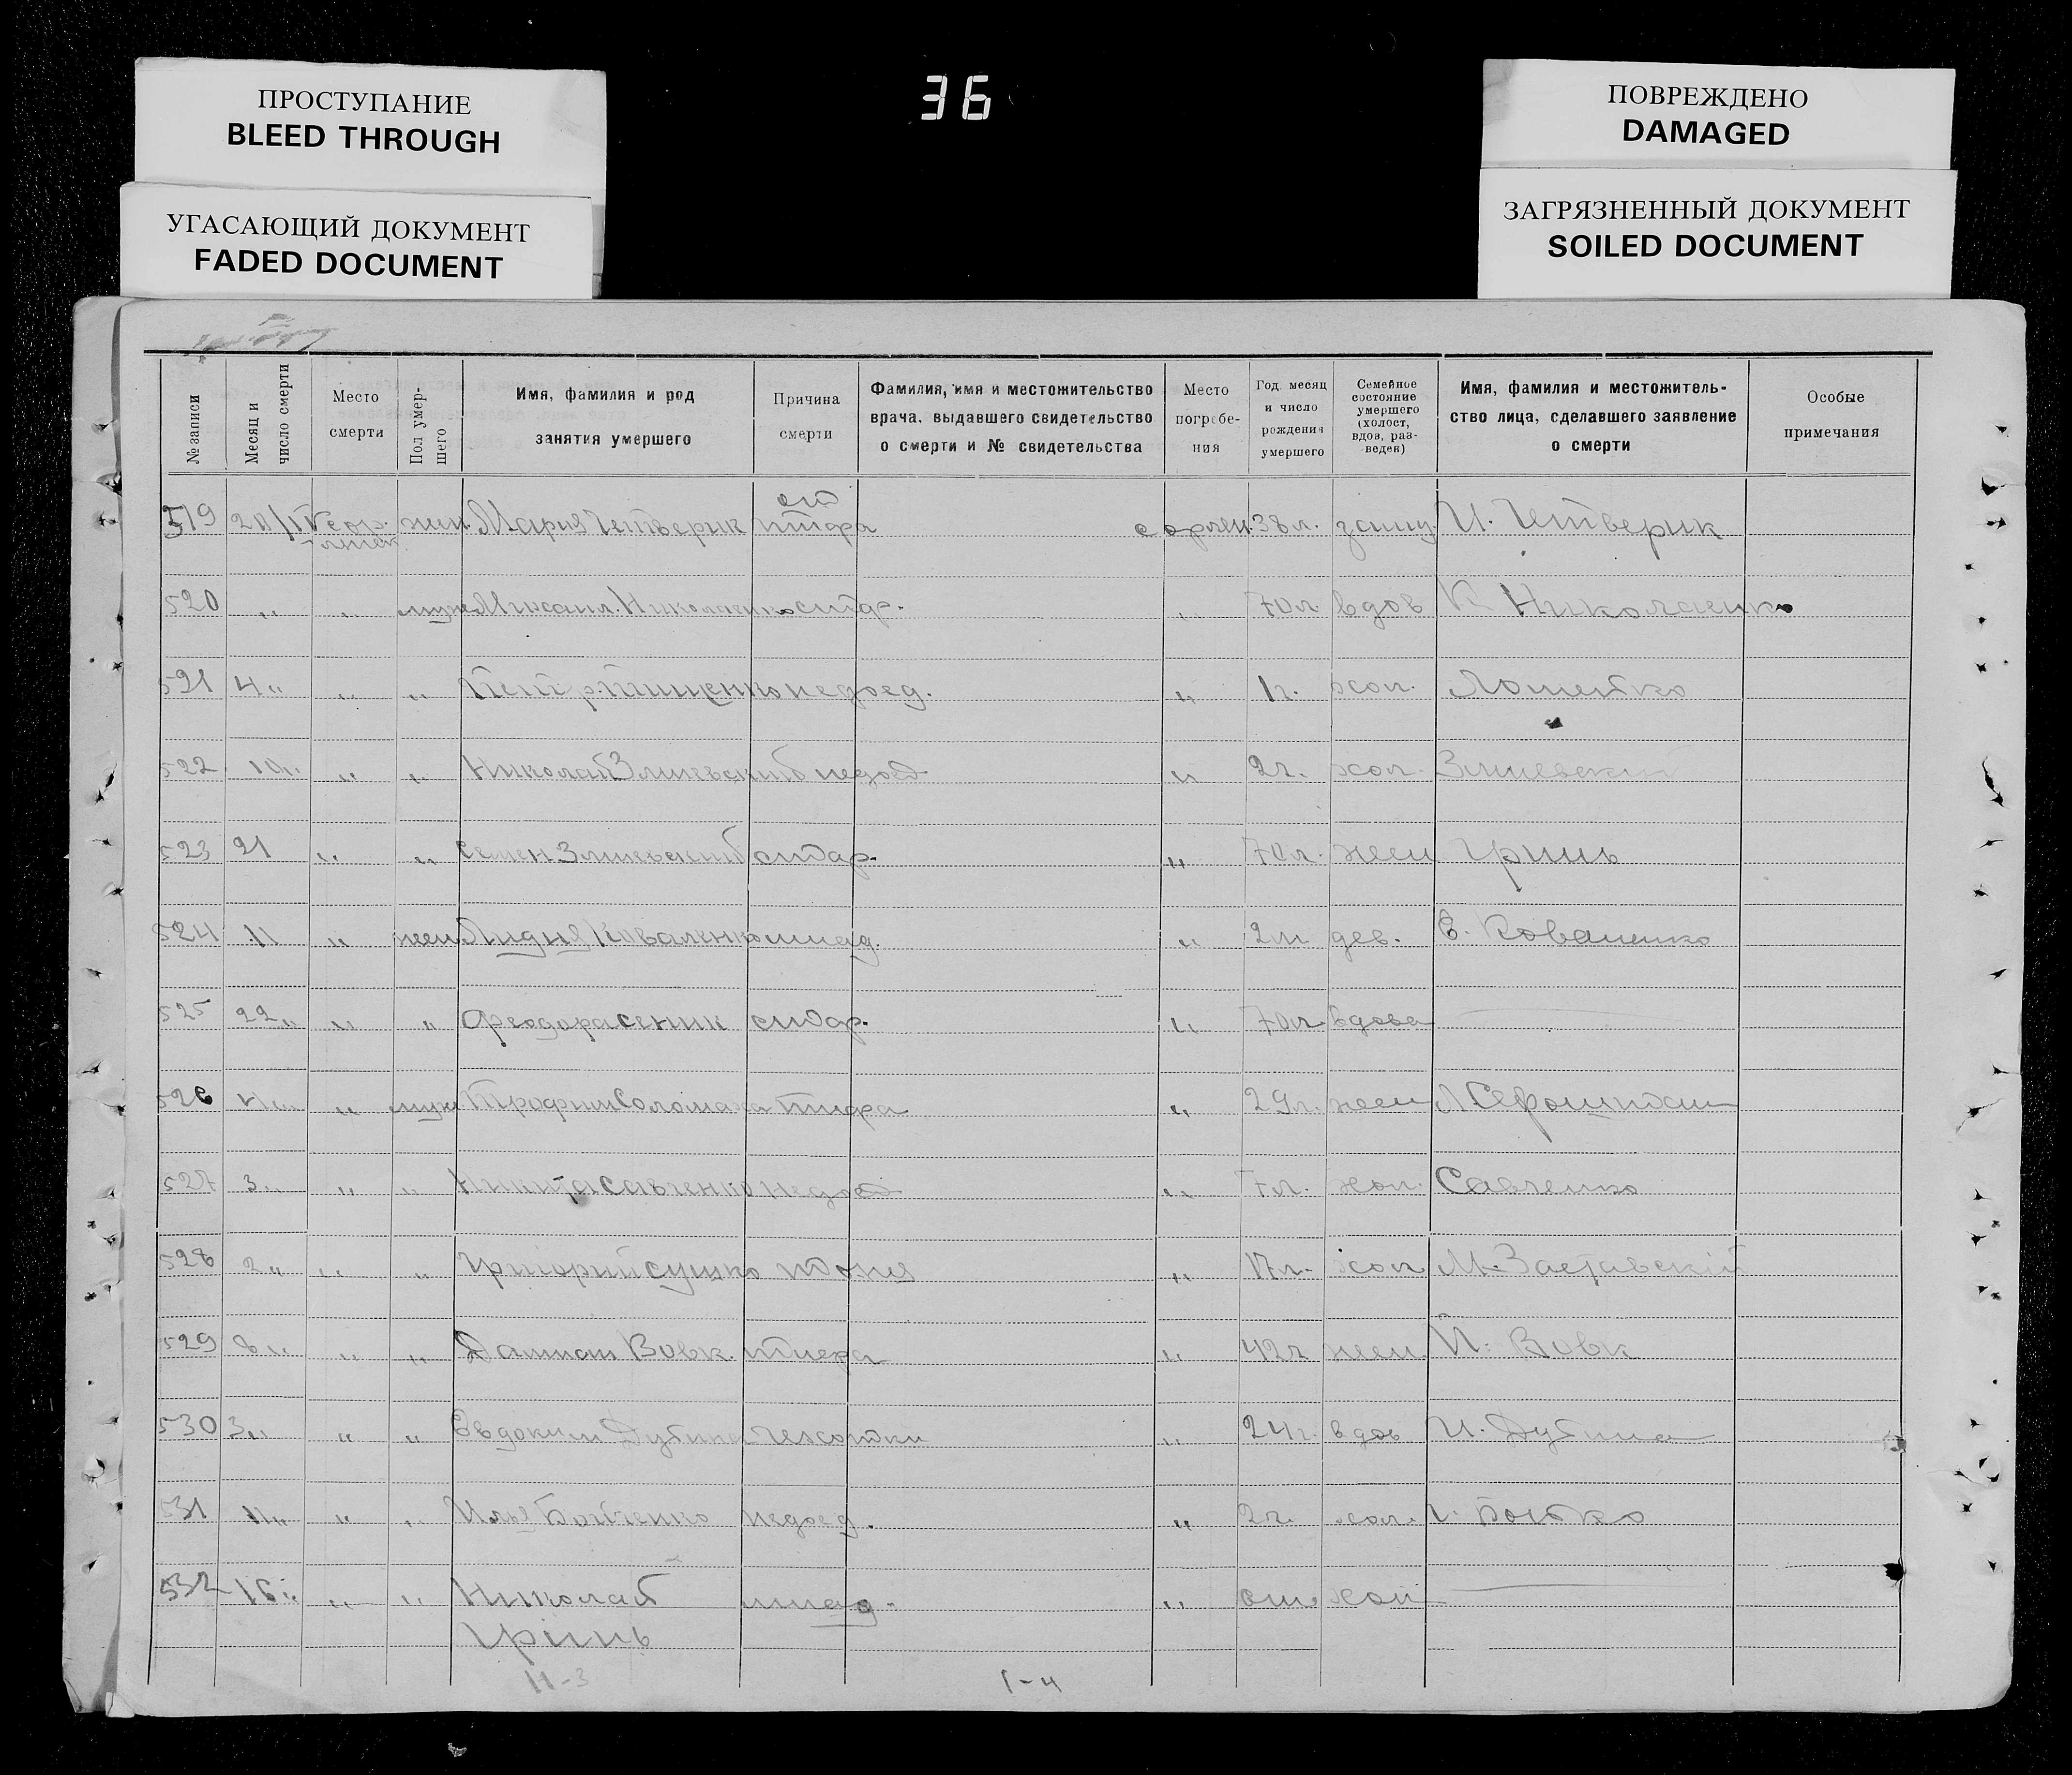 36
ПРОСТУПАНИЕ
BLEED THROUGH
УГАСАЮЩИЙ ДОКУМЕНТ
FADED DOCUMENT
ПОВРЕЖДЕНО
DAMAGED
ЗАГРЯЗНЕННЫЙ ДОКУМЕНТ
SOILED DOCUMENT
№ записи
Месяц и
число смерти
Место
смерти
Пол умер-
шего
Имя, фамилия и род
занятия умершего
Причина
смерти
Фамилия, имя и местожительство
врача, выдавшего свидетельство
о смерти и № свидетельства
Место
погребе-
ния
Год, месяц
и число
рождения
умершего
Семейное
состояние
умершего
(холост,
вдов, раз-
веден)
Имя, фамилия и местожитель-
ство лица, сделавшего заявление
о смерти
Особые
примечания
от
519 жен. Мария Четверик тифа 38 л. замуж. И. Четверик
520 " " муж Михаил Николаенко стар. " 70 л. вдов К Николаенко
521 4 " " " Петр Тищенко недоед. " 1 г. хол.
522 10 " " " Николай Змиевский недоед " 2 г. хол. Змиевский
523 21 " " Семен Змиевский стар. " 70 л. жен Гринь
524 11 " жен Лидия Коваленко млад. " 2 м дев. Е. Коваленко
525 22 " " " Феодора Сеник стар. " 70 л вдова
526 " муж Трофим Соломаха тифа " 29 л. жен
527 3 " " " Никита Савченко недоед " 7 л. хол. Савченко
528 2 " " " Григорий Сушко " 17 л. хол М. Заставский
529 8 " " " Вовк. " 42 г жен. Вовк
530 3 " " " Евдоким Дубина чехотки " 24 г. вдов И. Дубина
531 11 " " " Илья Бойченко недоед. " 2 г. хол. Бойко
532 16 " " " Николай млад. " хол
Гринь
11-3
1-4